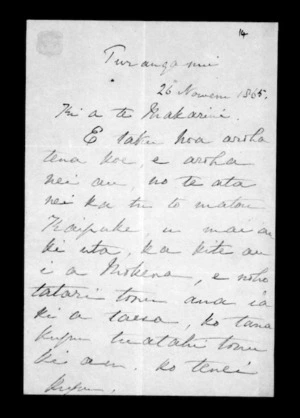 14
Turanganui
26 Nowema 1865.
Ki a te Makarini.
E taku hoa aroha
tena koe, e aroha
nei au, no te ata
nei ka tu to matou
Kaipuke, u mai au
ki uta, ka kite au
i a Mokena, e noho
tatari tonu ana ia
ki a taea, ko tana
kupu tuatahi tonu
ki au. ko tenei
kupu.